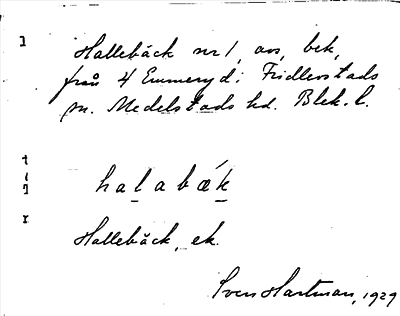 Hallebäck nr 1, avs, bek,
från 4 Emmeryd i Fridlevstads
sn. Medelstads hd. Blek. l.
halabǽk
Hallebäck, ek.
Sven Hartman, 1929